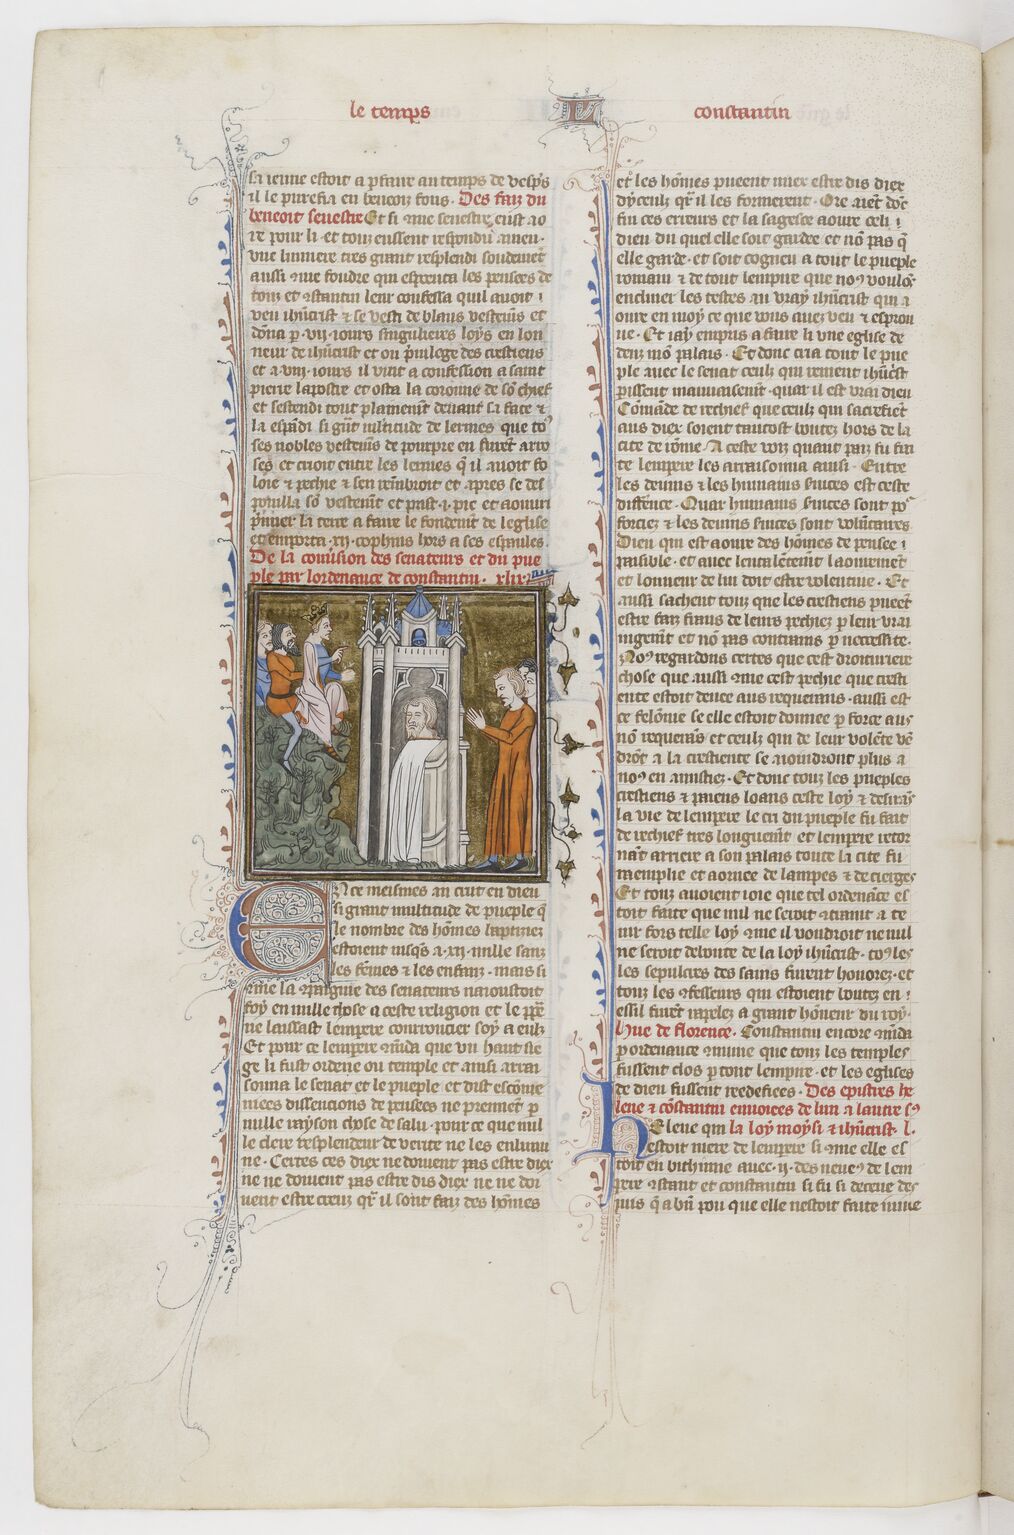 le temps
V
constantin
sa ieune estoit a pfaire au temps de vesps
il le purefia en beneoiz fons. Des faiz du
beneoit seuestre Et si ꝯme seuestre eust ao
re pour li et touz eussent respondu amen
vne lumiere tres grant resplendi soudeinemet
aussi ꝯme foudre qui espouenta les pensees de
touz et ꝯstantin leur confessa quil auoit
veu ihucrist ⁊ se vesti de blans vestemens et
dona p .vii. iours singulieres loys en lon
neur de ihucrist et ou puilege des crestiens
et a .viii. iours il vint a confession a saint
pierre lapostre et osta la coronne de so chief
et sestendi tout plainemt deuant sa face ⁊
la espandi si gnt multitude de lermes que to
ses nobles vestemens de pourpre en furet arro
ses et crioit entre les lermes q il auoit fo
loie ⁊ pechie ⁊ sen remembroit et apres se des
poulla so vestement et prist .i. pic et aouuri
pmier la terre a faire le fondement de leglise
et emporta .xii. cophins hors a ses espaules.
De la conuersion des senateurs et du pue
ple par lordenance de constantin. xlix
En ce meismes an crut en dieu
si grant multitude de pueple q
le nombre des homes baptizez
estoient iusqs a .xii. mille sanz
les femes ⁊ les enfanz. mais si
ꝯme la ꝯpaignie des senateurs naioustoit
foy en nulle chose a ceste religion et le ppe
ne laissast lempere courroucier soy a eulz
Et pour ce lempere ꝯmada que vn haut sie
ge li fust ordene ou temple et ainsi arrai
sonna le senat et le pueple et dist escome
niees dissencions de pensees ne prennent p
nulle rayson chose de salu. pour ce que nul
le clere resplendeur de verite ne les enlumi
ne. Certes ces diex ne doiuent pas estre diex
ne ne doiuent pas estre dis diex ne ne doi
uent estre creuz qr il sont faiz des homes
et les homes pueent miex estre dis diex
dyceulz qr il les formerent. Ore aient doc
fin ces erreurs et la sagesce aoure celi
dieu du quel elle soit gardee et no pas q
elle garde. et soit cogneu a tout le pueple
romain ⁊ de tout lempire que nous voulos
encliner les testes au vray ihucrist qui a
oure en moy ce que vous auez veu ⁊ esprou
ue. Et iay empris a faire li vne eglise de
denz mo palais. Et donc cria tout le pue
ple auec le senat ceulz qui renient ihucrist
perissent mauuaisement. quar il est vrai dieu
Comade de rechief que ceulz qui sacrefient
aus diex soient tantost boutez hors de la
cite de rome. A ceste voiz quant paiz fu fai
te lempere les arraisonna ainsi. Entre
les deuins ⁊ les humains seruices est ceste
difference. Quar humains seruices sont po
forciez ⁊ les deuins seruices sont voluntaires
Dieu qui est aoure des homes de pensee
paisible. et auec lentalentement laourement
et lonneur de lui doit estre volentiue. Et
aussi sachent touz que les crestiens pueent
estre faiz frans de leurs pechiez p leur vrai
iugement et no pas contrains p necessite.
Nos regardons certes que cest droituriere
chose que aussi ꝯme cest pechie que cresti
ente estoit deuee aus requerans. aussi est
ce felonie se elle estoit donnee p force aus
no requerans et ceulz qui de leur volente ve
dront a la crestiente se aioindront plus a
nos en amistiez. Et donc touz les pueples
crestiens ⁊ paiens loans ceste loy ⁊ desirans
la vie de lempere le cri du pueple fu fait
de rechief tres longuement et lempere retor
nant arriere a son palais toute la cite fu
raemplie et aornee de lampes ⁊ de cierges
Et touz auoient ioie que tel ordenance es
toit faite que nul ne seroit ꝯtraint a te
nir fors telle loy ꝯme il voudroit ne nul
ne seroit deboute de la loy ihucrist. tos les
les sepulcres des sains furent honorez. et
touz les ꝯfesseurs qui estoient boutez en
essil furet rapelez a grant honeur du roy.
Hue de florence. Constantin encore ꝯmada
p ordenance ꝯmune que touz les temples
fussent clos p tout lempire. et les eglises
de dieu fussent reedefiees. Des epistres he
lene ⁊ costantin enuoiees de lun a lautre sus
la loy moysi ⁊ ihucrist. l.
Helene qui
estoit mere de lempere si ꝯme elle es
toit en bithinie auec .ii. des neueus de lem
pere ꝯstant et constantin si fu si deceue des
puis q a bn pou que elle nestoit faite iuiue